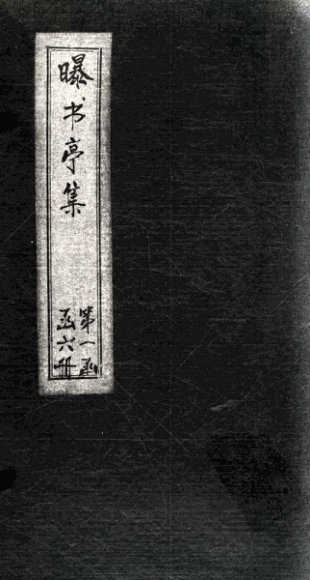 曝书亭集
第一函
函六册